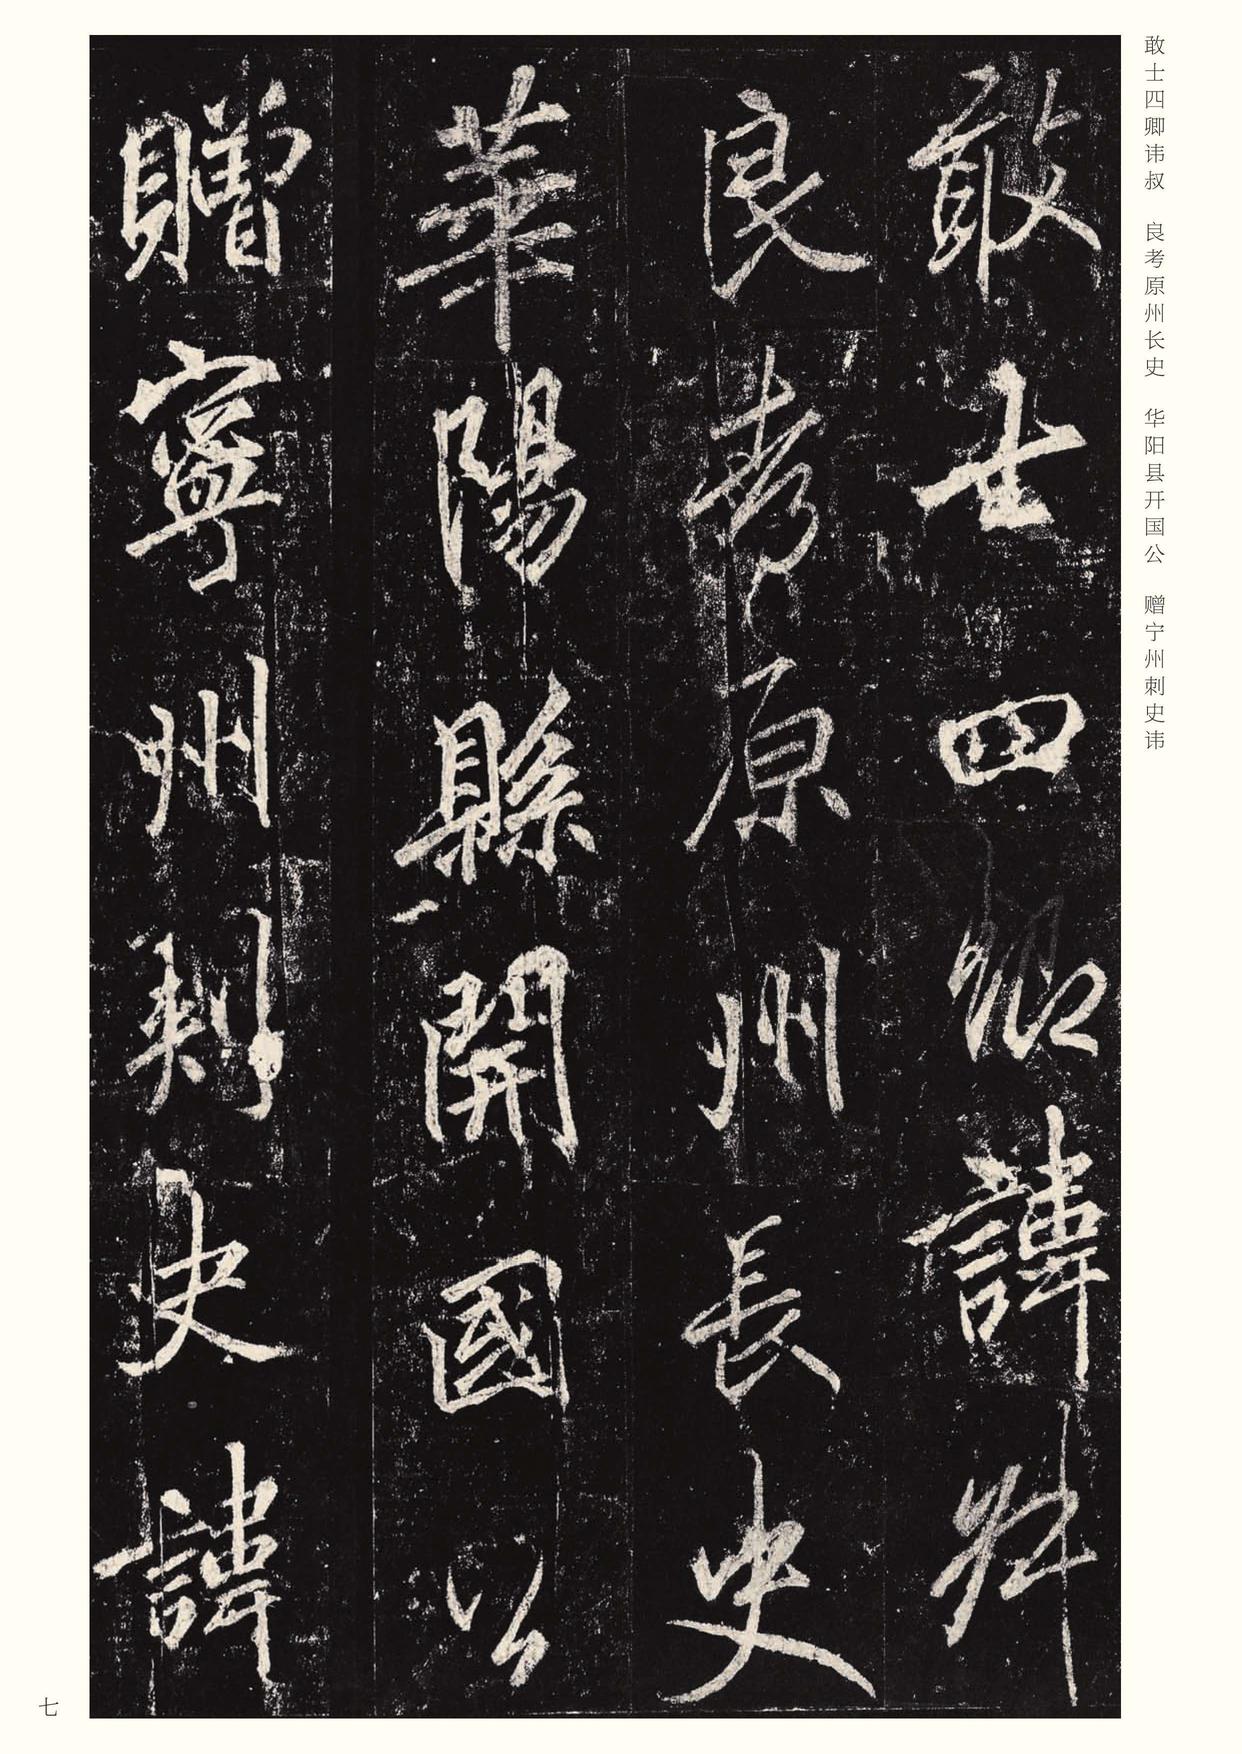 敢士四卿讳叔　良考原州长史　华阳县开国公　赠宁州刺史讳
敢士四卿諱叔
良考原州長史
華陽縣開國公
贈寧州刺史諱
七